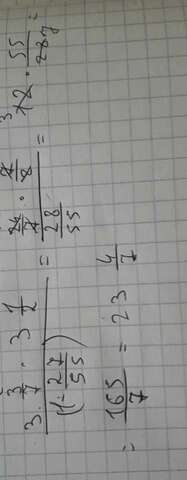 3 3/7 · 3 1/2 / (1 - 27/55) = 24/7 · 7/2 / 28/55 = 12 3 · 55/28 7 =
= 165/7 = 23 4/7